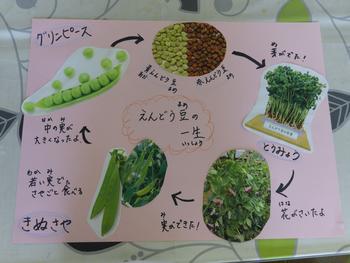 グリンピース
青えんどう豆
まめ
赤えんどう豆
まめ
め
芽がでた!
とうみょう
はな
花がさいたよ
み
実ができた!
わか み
若い実で
さやごと食べる
きぬさや
なか み
中の実が
おお
大きくなったよ
まめ
えんどう豆の
一生
いっしょう